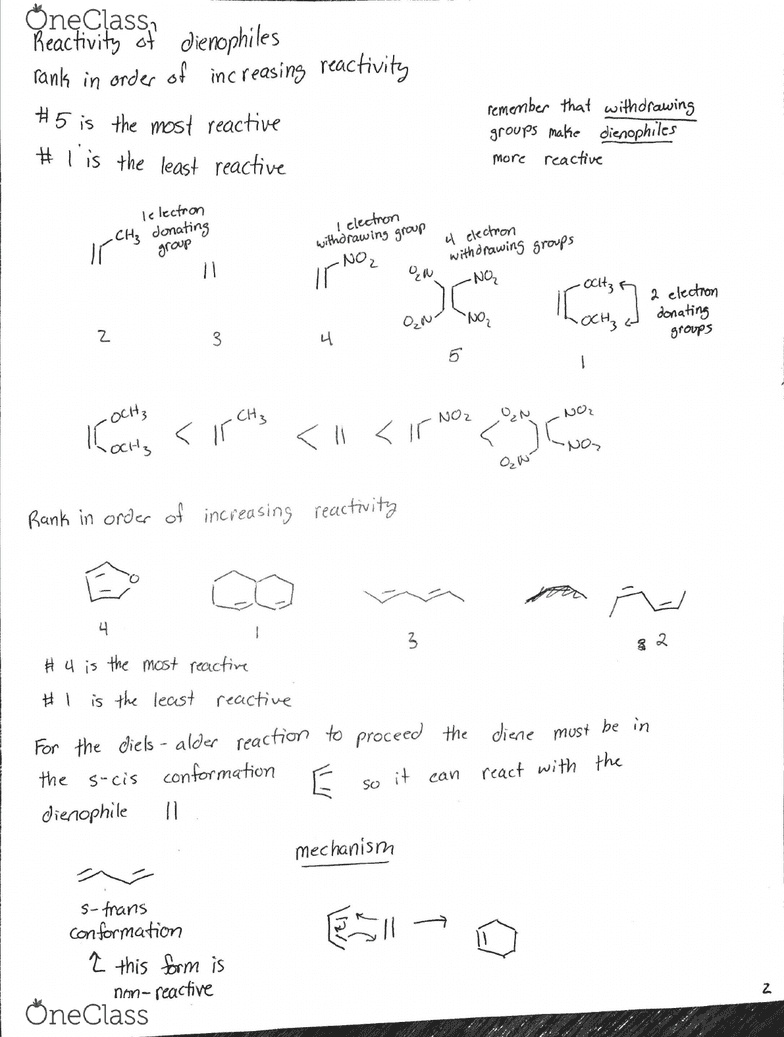 OneClass
Reactivity of dienophiles
rank in order of increasing reactivity
#5 is the most reactive
#1 is the least reactive
remember that withdrawing
groups make dienophiles
more reactive
1 electron
donating
group
CH3
1 electron
withdrawing group
NO2
4 electron
withdrawing groups
O2N NO2
O2N NO2
OCH3
OCH3
2 electron
donating
groups
2 3 4 5 1
OCH3
OCH3
< CH3 < < NO2 < O2N NO2
O2N NO2
Rank in order of increasing reactivity
O
4 1 3 2
#4 is the most reactive
#1 is the least reactive
For the diels-alder reaction to proceed the diene must be in
the s-cis conformation so it can react with the
dienophile
mechanism
s-trans
conformation
this form is
non-reactive
2
OneClass